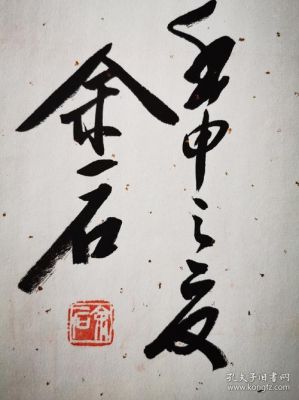 壬申之夏
余石
余石
孔夫子旧书网
www.kongfz.com